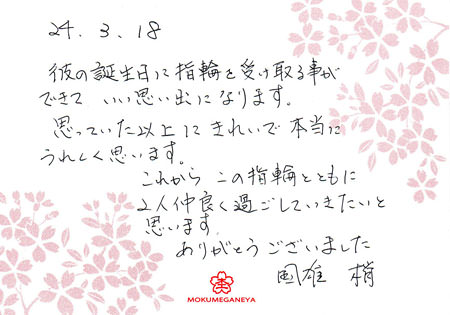 24.3.18
彼の誕生日に指輪を受け取る事が
できて いい思い出になります。
思っていた以上に きれいで 本当に
うれしく思います。
これから この指輪とともに
2人仲良く過ごしていきたいと
思います。
ありがとうございました
国雄 梢
MOKUMEGANEYA